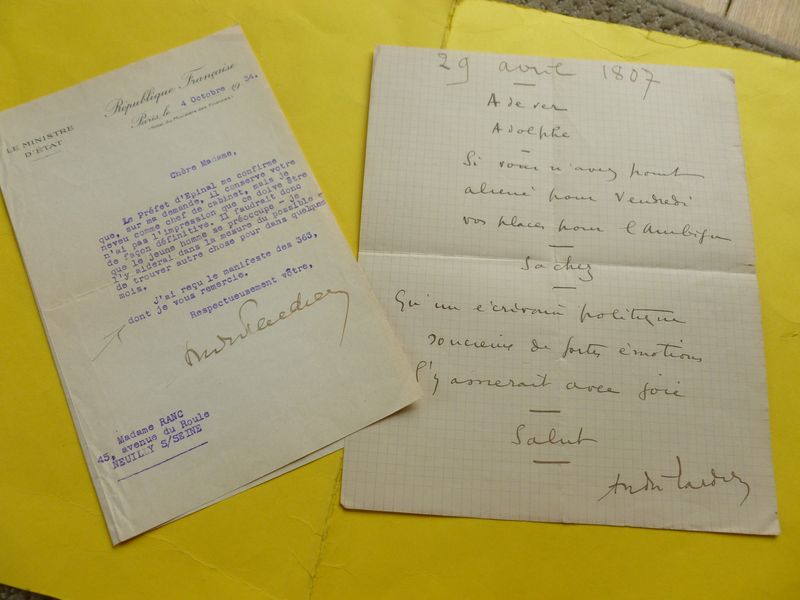 République Française
LE MINISTRE
D'ÉTAT
Paris, le 4 Octobre 1934.
Chère Madame,
Le Préfet d'Epinal me confirme
que, sur ma demande, il conserve votre
neveu comme chef de cabinet, mais je
n'ai pas l'impression que ce doive être
de façon définitive. Il faudrait donc
que le jeune homme se préoccupe - je
l'y aiderai dans la mesure du possible -
de trouver autre chose pour dans quelques
mois.
J'ai reçu le manifeste des 363,
dont je vous remercie.
Respectueusement vôtre,
André Tardieu
Madame RANC
45, avenue du Roule
NEUILLY S/SEINE
29 avril 1807
Adolphe
Si vous n'avez point
aliené pour Vendredi
vos places pour l'Ambigu
Sachez
Qu'un écrivain politique
soucieux de fortes émotions
s'y assierait avec joie
Salut
André Tardieu